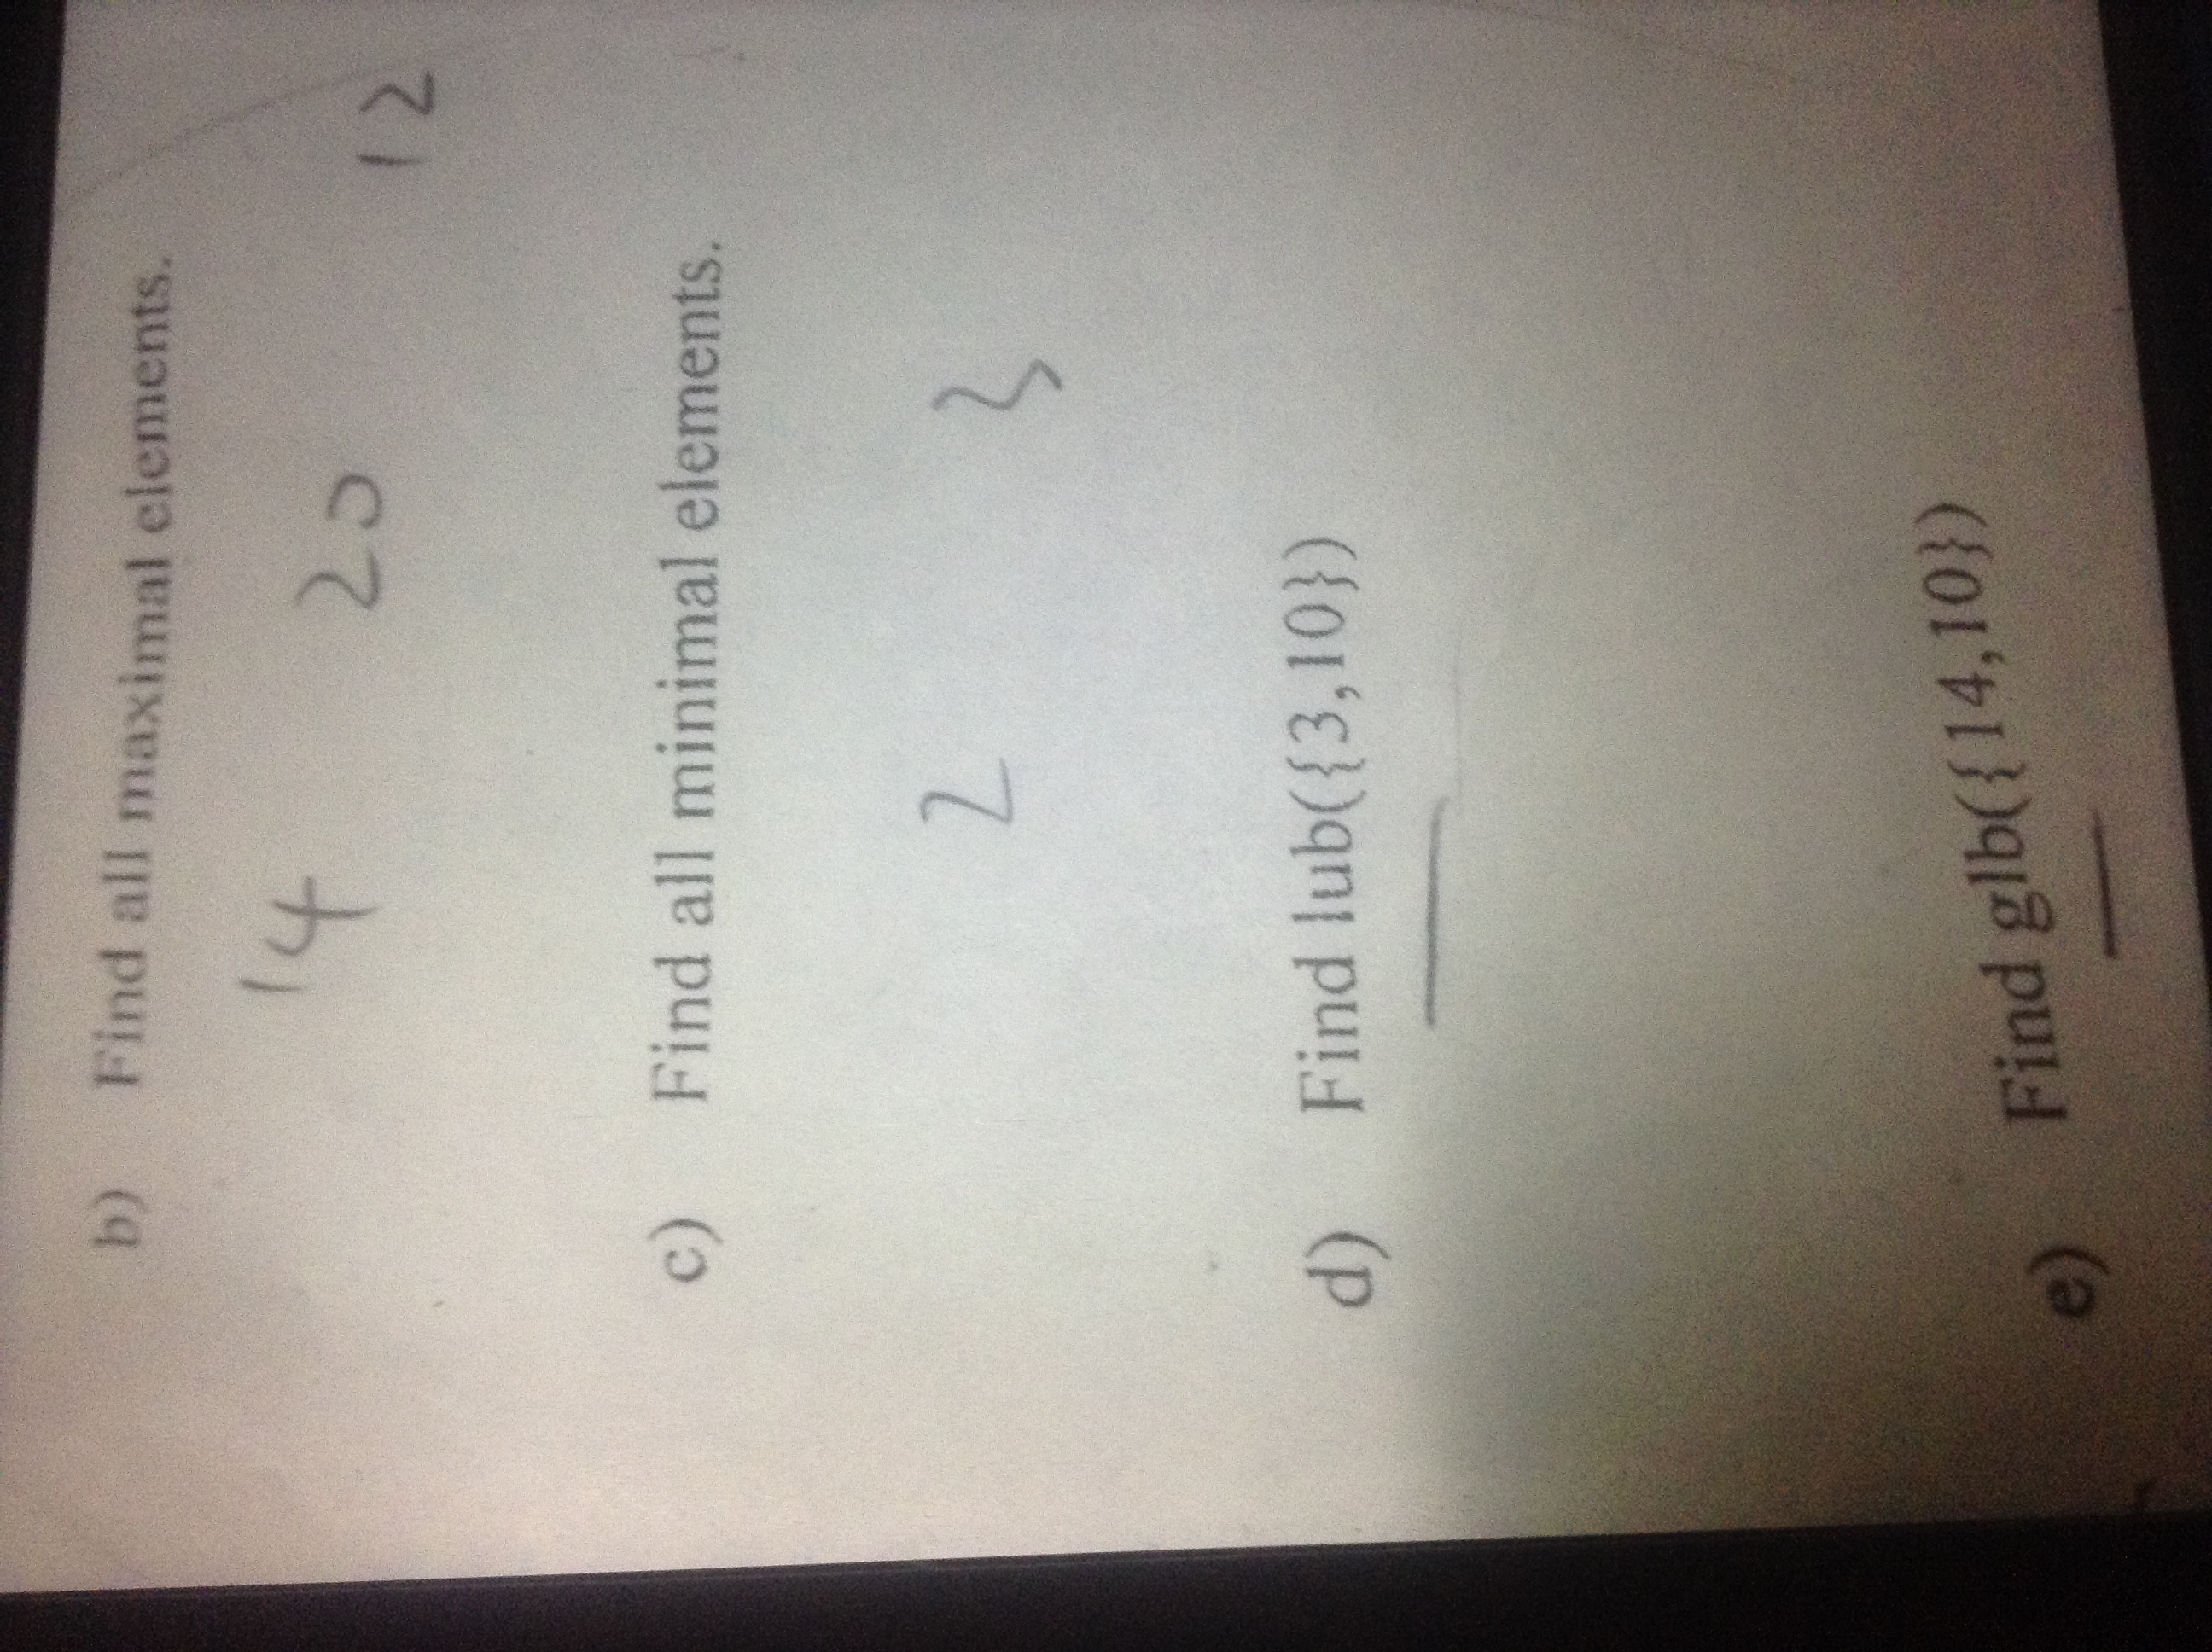 b) Find all maximal elements.
14 20 12
c) Find all minimal elements.
2 3
d) Find lub({3,10})
e) Find glb({14,10})